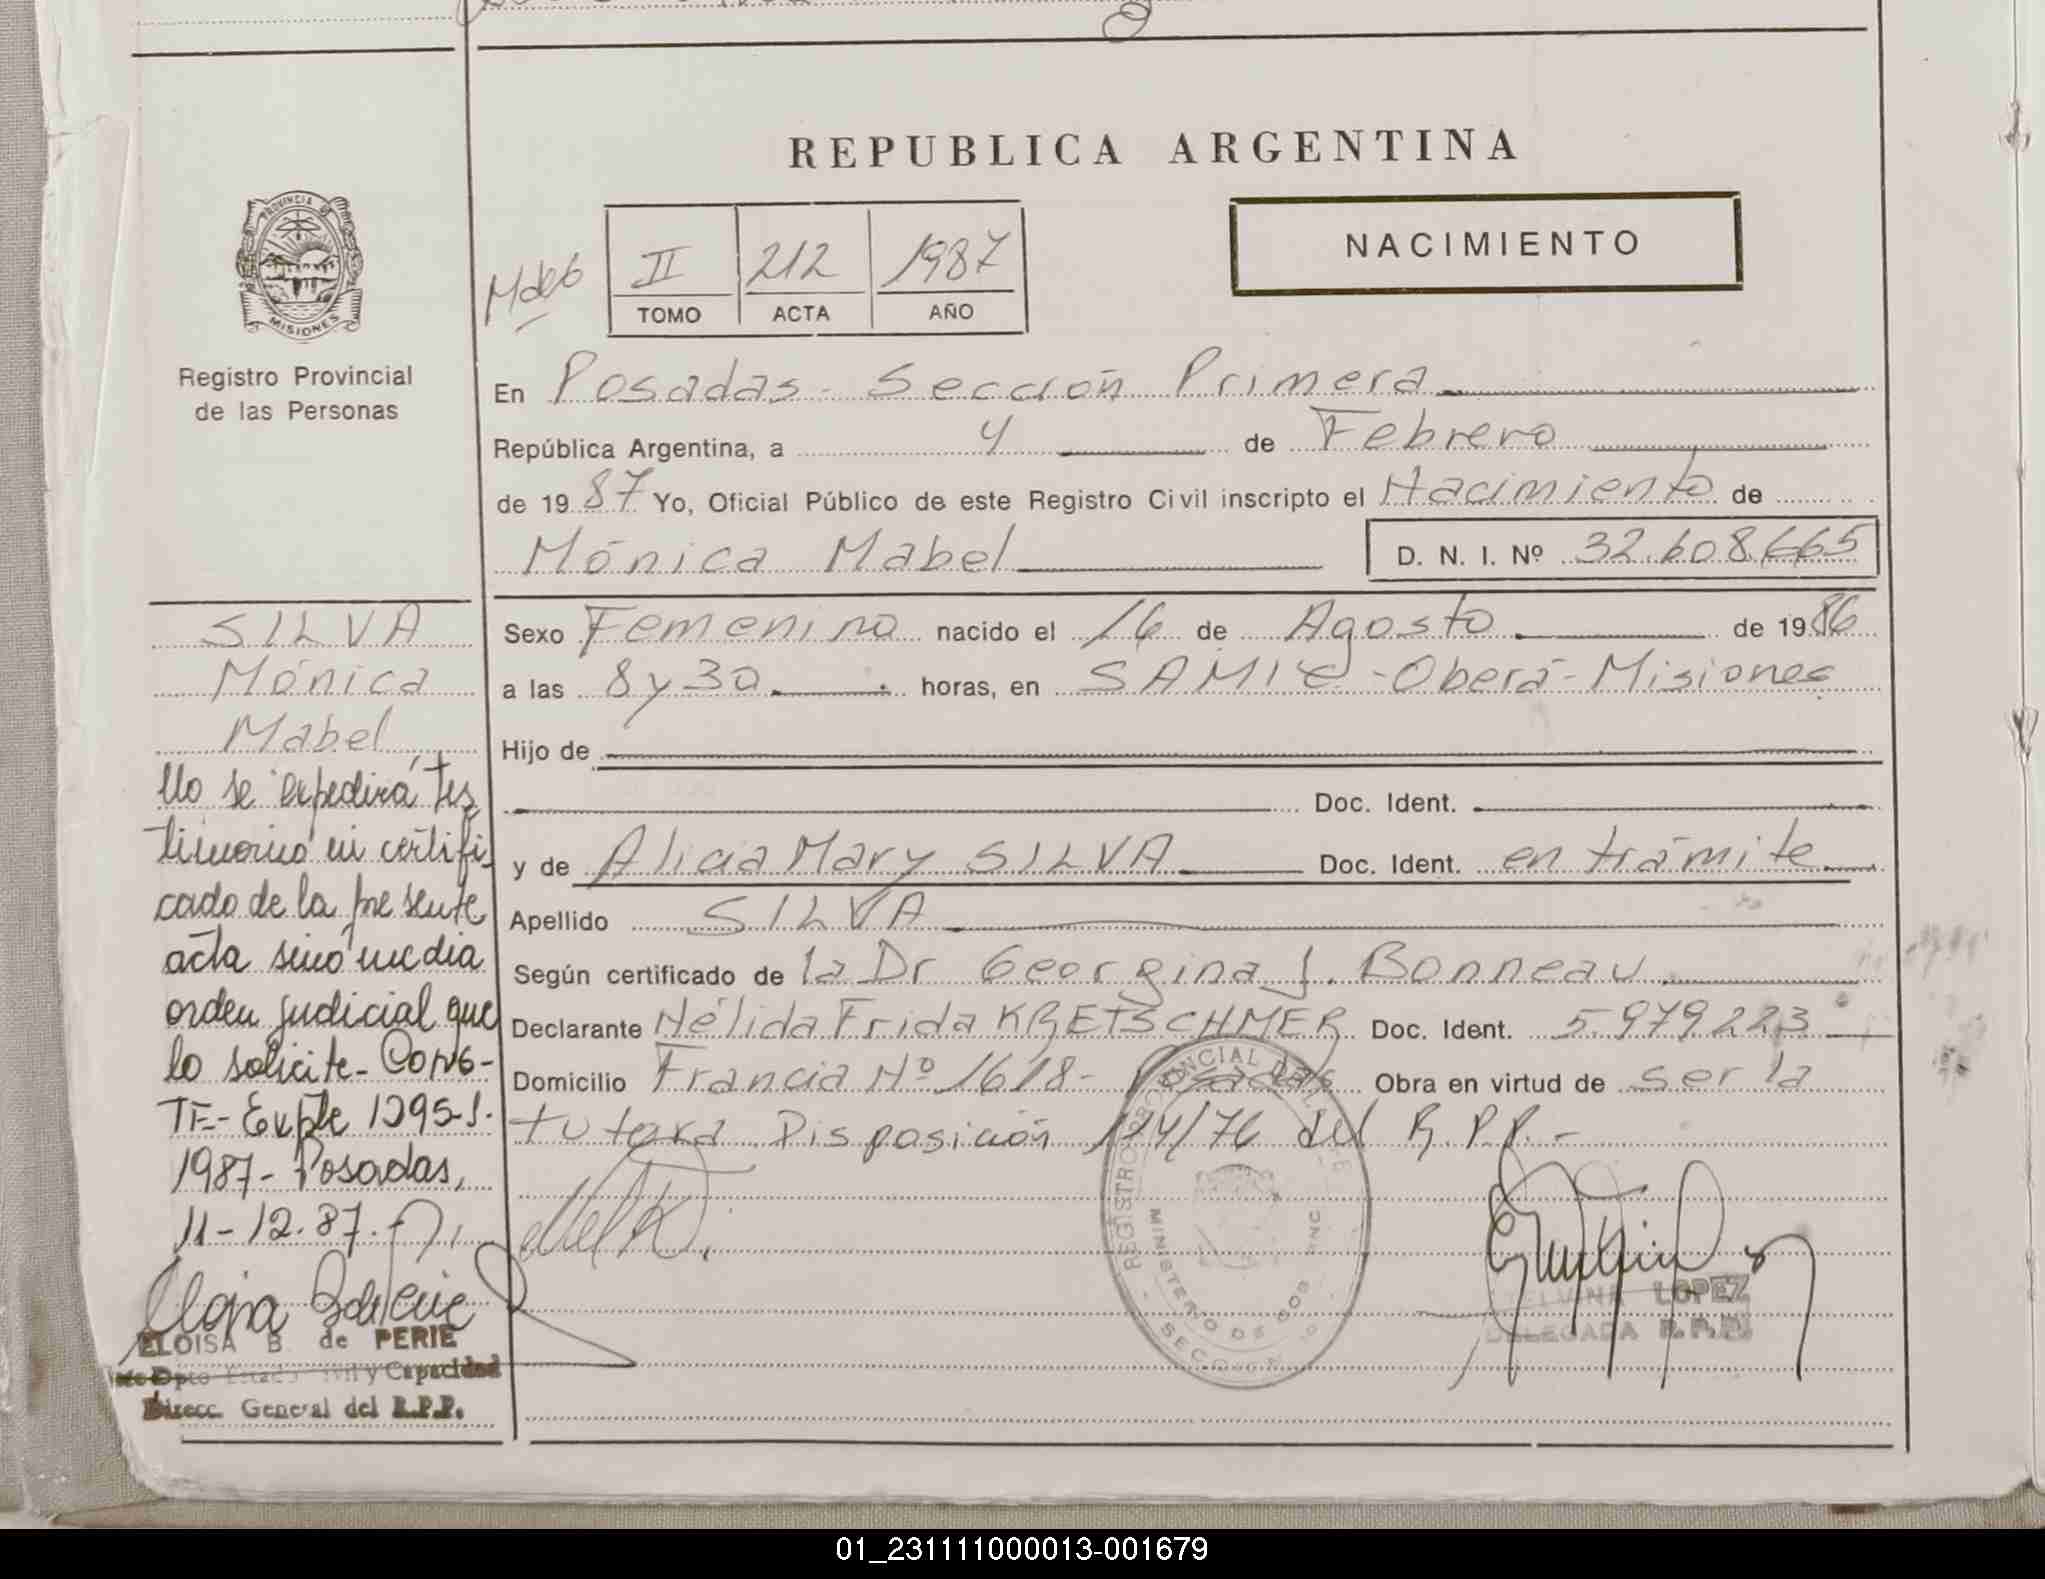 REPUBLICA ARGENTINA
NACIMIENTO
PROVINCIA DE
MISIONES
Registro Provincial
de las Personas
II 212 1987
TOMO ACTA AÑO
En Posadas - Sección Primera
República Argentina, a 4 de Febrero
de 1987 Yo, Oficial Público de este Registro Civil inscripto el Nacimiento de
Mónica Mabel D. N. I. Nº 32.608.665
Sexo Femenino nacido el 16 de Agosto de 1986
a las 8 y 30 horas, en SAMIC - Oberá - Misiones
Hijo de
Doc. Ident.
y de Alicia Mary SILVA Doc. Ident. en trámite
Apellido SILVA
Según certificado de la Dr Georgina J. Bonneau
Declarante Nélida Frida KRETSCHMER Doc. Ident. 5.979.223
Domicilio Francia Nº 1618 - Posadas Obra en virtud de ser la
tutora Disposición 124/76 del R.P.P. -
SILVA
Mónica
Mabel
No se expedirá tes
timonio ni certifi
cado de la presente
acta sino media
orden judicial que
lo solicite - CONS-
TE - Expte 1295-S-
1987 - Posadas,
11-12-87.-
ELOISA B. de PERIE
Dpto Estado Civil y Capacidad
Direcc. General del R.P.P.
REGISTRO PROVINCIAL DE
MINISTERIO DE GOB
LOPEZ
DELEGADA R.P.P.
01_231111000013-001679